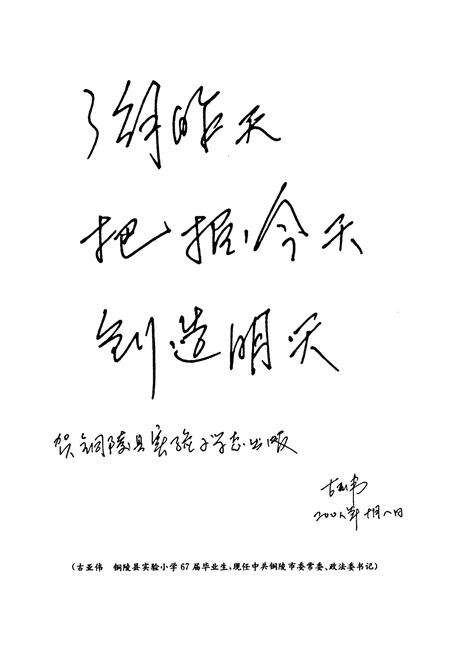 了解昨天
把握今天
创造明天
贺铜陵县实验小学志出版
古亚伟
十月八日
(古亚伟 铜陵县实验小学67届毕业生,现任中共铜陵市委常委、政法委书记)